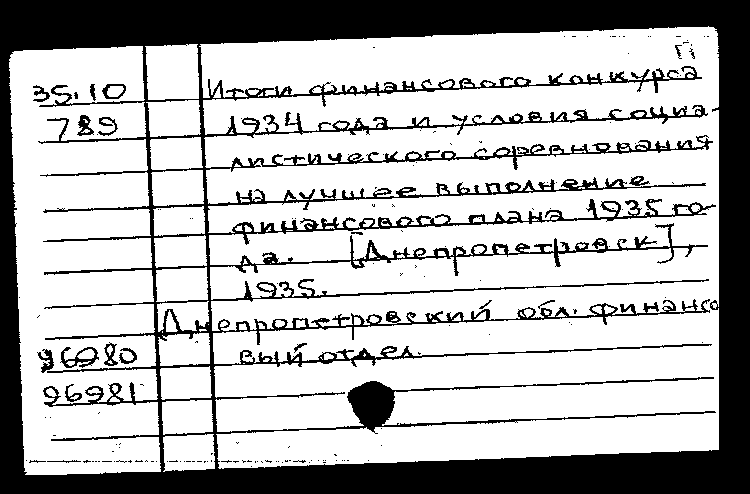 П
35.10 Итоги финансового конкурса
789 1934 года и условия социа-
листического соревнования
на лучшее выполнение
финансового плана 1935 го-
да. [Днепропетровск],
1935.
Днепропетровский обл. финансо
96980 вый отдел.
96981